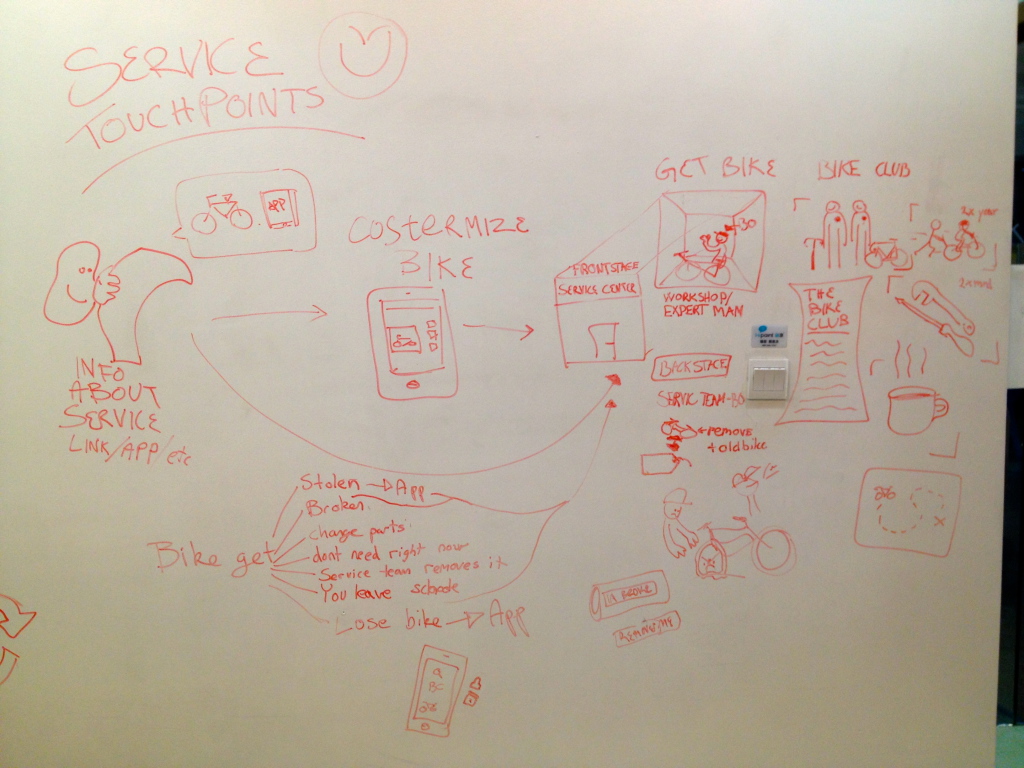 SERVICE
TOUCHPOINTS
APP
INFO
ABOUT
SERVICE
LINK/APP/etc
COSTERMIZE
BIKE
FRONTSTAGE
SERVICE CENTER
GET BIKE
BO
WORKSHOP/
EXPERT MAN
BACKSTAGE
SERVIC TEAM-BO
← remove
old bike
BIKE CLUB
THE
BIKE
CLUB
Bike get
Stolen → App
Broken
change parts
dont need right now
Service team removes it
You leave
Lose bike → App